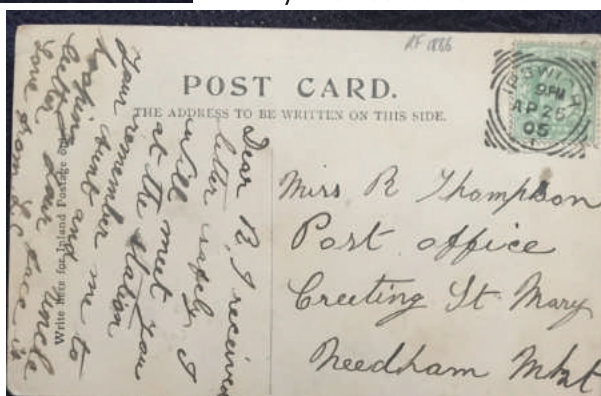 RF 1886
POST CARD.
THE ADDRESS TO BE WRITTEN ON THIS SIDE.
IPSWICH
9 PM
AP 25
05
Write here for Inland Postage only
Dear R, I received
letter safely I
will meet you
at the station
remember me to
Your aunt and uncle
hoping your face is
better
Love from
Miss R Thompson
Post office
Creeting St. Mary
Needham Mkt